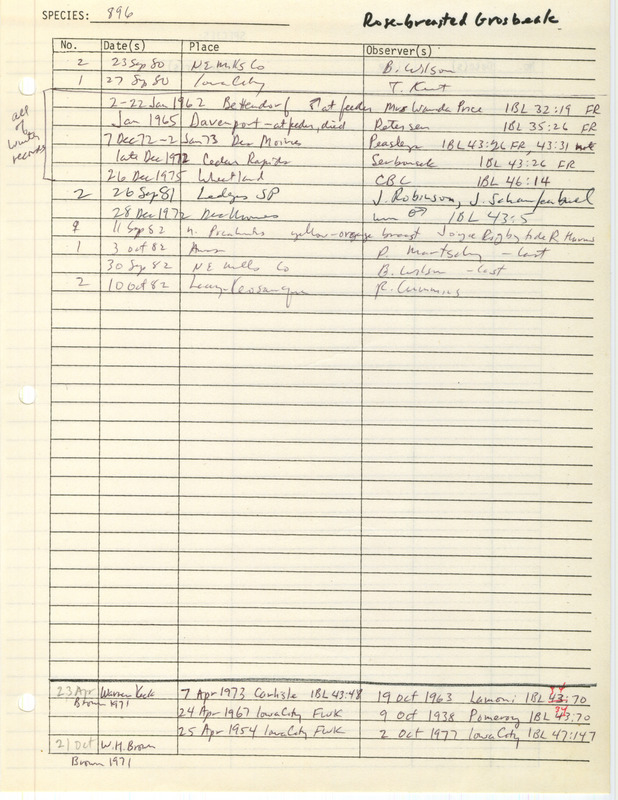 SPECIES: 896 Rose-breasted Grosbeak
No. Date(s) Place Observer(s)
2 23 Sep 80 NE Mills Co B. Wilson
1 27 Sep 80 Iowa City T. Kent
all of winter records
2-22 Jan 1962 Bettendorf ♂ at feeder Mrs Wanda Price IBL 32:19 FR
Jan 1965 Davenport - at feeder, died Petersen IBL 35:26 FR
7 Dec 72 - 2 Jan 73 Des Moines Peasley IBL 43:26 FR, 43:31
late Dec 1972 Cedar Rapids Serbousek IBL 43:26 FR
26 Dec 1975 Wheatland CBC IBL 46:14
2 26 Sep 81 Ledges SP J. Robinson, J. Schaufenbuel
28 Dec 1972 Des Moines imm ♂ IBL 43:5
♀ 11 Sep 82 n. Pocahontas yellow-orange breast Joyce Rigby fide R. Harms
1 3 Oct 82 Ames P. Martsching - last
30 Sep 82 NE Mills Co B. Wilson - last
2 10 Oct 82 Lacey-Keosauqua R. Cummins
23 Apr Warren Keck 7 Apr 1973 Carlisle IBL 43:48 19 Oct 1963 Lamoni IBL 43:70
Brown 1971 24 Apr 1967 Iowa City FWK 9 Oct 1938 Pomeroy IBL 43:70
25 Apr 1954 Iowa City FWK 2 Oct 1977 Iowa City IBL 47:147
21 Oct W.H. Brown
Brown 1971